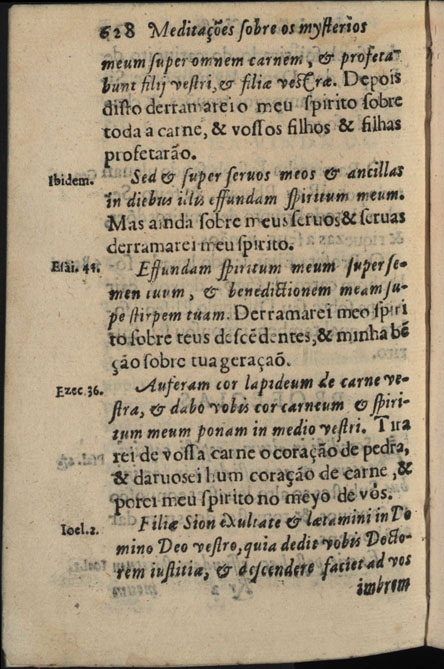 628 Meditações ſobre os myſterios
meum ſuper omnem carnem, & profeta-
bunt filij veſtri, & filiæ veſtræ. Depois
diſto derramarei o meu ſpirito ſobre
toda a carne, & voſſos filhos & filhas
profetarão.
Ibidem. Sed & ſuper ſeruos meos & ancillas
in diebus illis effundam ſpiritum meum.
Mas ainda ſobre meus ſeruos & ſeruas
derramarei meu ſpirito.
Eſai. 44. Effundam ſpiritum meum ſuper ſe-
men tuum, & benedictionem meam ſu-
pe ſtirpem tuam. Derramarei meo ſpiri
to ſobre teus deſcẽdentes, & minha bẽ
ção ſobre tua geraçaõ.
Ezec. 36. Auferam cor lapideum de carne ve-
ſtra, & dabo vobis cor carneum & ſpiri-
tum meum ponam in medio veſtri. Tira
rei de voſſa carne o coração de pedra,
& daruosei hum coração de carne, &
porei meu ſpirito no meyo de vòs.
Ioel. 2. Filiæ Sion exultate & lætamini in Do
mino Deo veſtro, quia dedit vobis Docto-
rem iuſtitiæ, & deſcendere faciet ad vos
imbrem